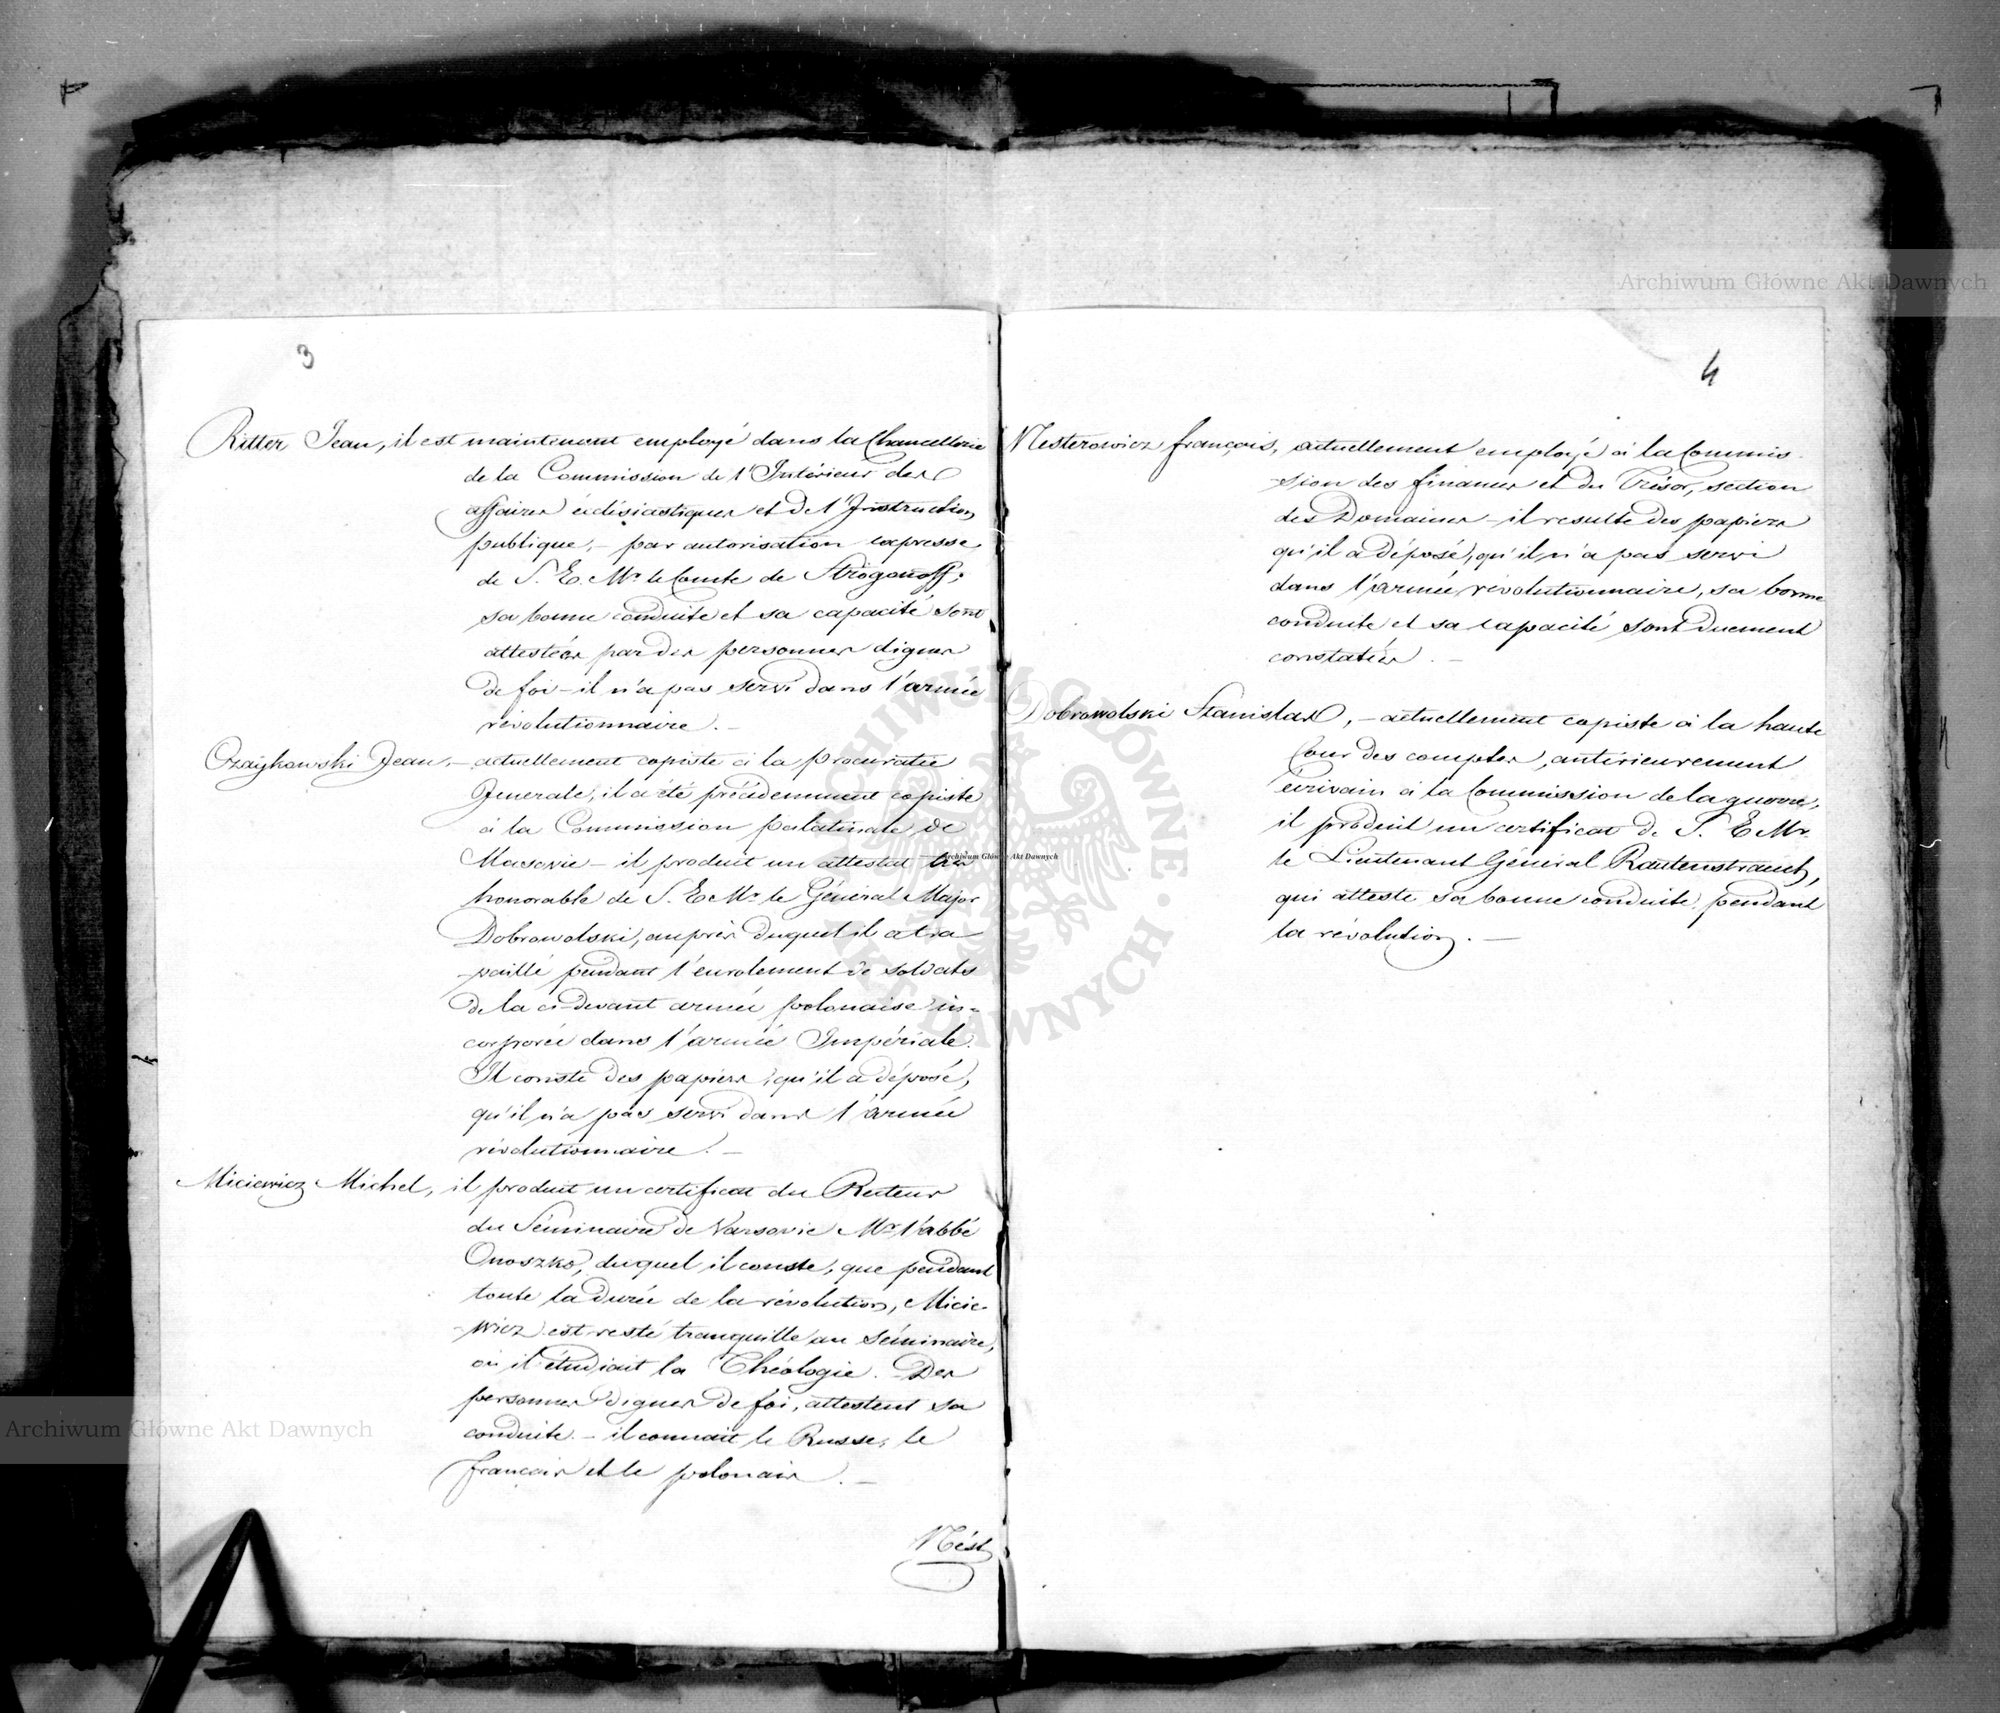 3
Ritter Jean, il est maintenant employé dans la Chancellerie
de la Commission de l'Intérieur des
affaires éclésiastiques et de l'Instruction
publique, – par autorisation expresse
de S. E. Mr. le Comte de Stroganoff;
sa bonne conduite et sa capacité sont
attestées par des personnes dignes
de foi – il n'a pas servi dans l'armée
révolutionnaire. –
Czaykowski Jean, – actuellement copiste à la Procuratie
Generale, il a été précédemment copiste
à la Commission palatinale de
Masovie – il produit un attestat très
honorable de S. E. Mr. le Général Major
Dobrowolski, auprès duquel il a tra
-vaillé pendant l'enrolement de soldats
de la ci-devant armée polonaise in-
corporée dans l'armée Impériale.
Il conste des papiers, qu'il a déposé,
qu'il n'a pas servi dans l'armée
révolutionnaire. –
Miciewicz Michel, il produit un certificat du Recteur
du Séminaire de Varsovie Mr. l'abbé
Onoszko, duquel il conste, que pendant
toute la durée de la révolution, Micie-
-wicz est resté tranquille au Séminaire,
où il étudiait la Théologie. Des
personnes dignes de foi, attestent sa
conduite. – il connait le Russe, le
françois et le polonais. –
Nest
4
Nesterowicz François, actuellement employé à la Commis-
-sion des finances et du Trésor, section
des Domaines – il resulte des papiers
qu'il a déposé, qu'il n'a pas servi
dans l'armée révolutionnaire, sa bonne
conduite et sa capacité sont duement
constatées. –
Dobrowolski Stanislas, – actuellement copiste à la haute
Cour des comptes, antérieurement
écrivain à la Commission de la guerre,
il produit un certificat de S. E. Mr.
le Lieutenant Général Rautenstrauch,
qui atteste sa bonne conduite, pendant
la révolution. –
Archiwum Główne Akt Dawnych
Archiwum Główne Akt Dawnych
Archiwum Główne Akt Dawnych
ARCHIWUM GŁÓWNE AKT DAWNYCH